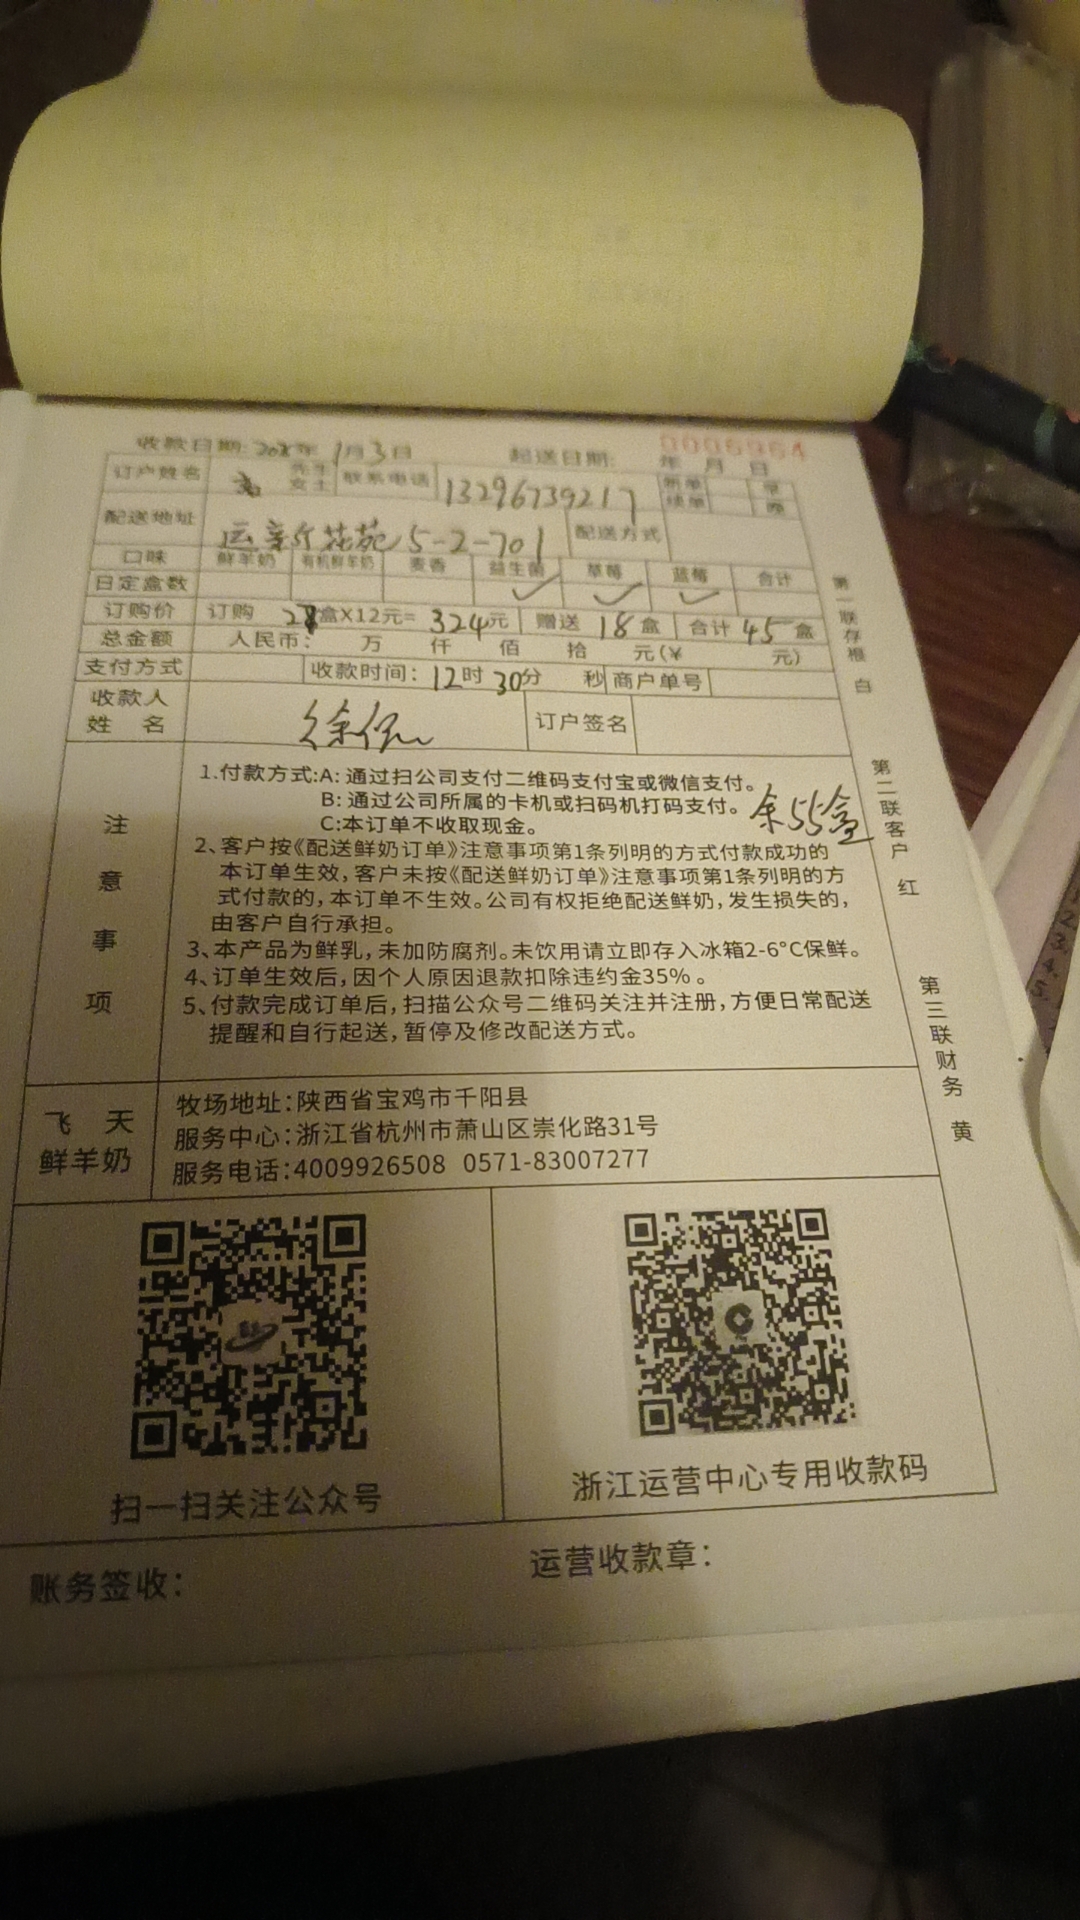 收款日期: 年 1月3日 起送日期: 年 月 日 0006964
订户姓名 先生 女士 联系电话 13296739217 新单 续单 早 晚
配送地址 花苑 5-2-701 配送方式
口味 鲜羊奶 有机鲜羊奶 麦香 益生菌 草莓 蓝莓 合计
日定盒数 ✓ ✓ ✓
订购价 订购 27盒X12元= 324元 赠送 18盒 合计 45盒
总金额 人民币: 万 仟 佰 拾 元(¥ 元)
支付方式 收款时间: 12时30分 秒 商户单号
收款人 姓 名 徐 订户签名
注意事项
1.付款方式:A: 通过扫公司支付二维码支付宝或微信支付。
B: 通过公司所属的卡机或扫码机打码支付。
C:本订单不收取现金。
余55盒
2、客户按《配送鲜奶订单》注意事项第1条列明的方式付款成功的
本订单生效,客户未按《配送鲜奶订单》注意事项第1条列明的方
式付款的,本订单不生效。公司有权拒绝配送鲜奶,发生损失的,
由客户自行承担。
3、本产品为鲜乳,未加防腐剂。未饮用请立即存入冰箱2-6°C保鲜。
4、订单生效后,因个人原因退款扣除违约金35%。
5、付款完成订单后,扫描公众号二维码关注并注册,方便日常配送
提醒和自行起送,暂停及修改配送方式。
飞天
鲜羊奶
牧场地址:陕西省宝鸡市千阳县
服务中心:浙江省杭州市萧山区崇化路31号
服务电话:4009926508 0571-83007277
扫一扫关注公众号
浙江运营中心专用收款码
账务签收:
运营收款章:
第一联存根 白
第二联客户 红
第三联财务 黄